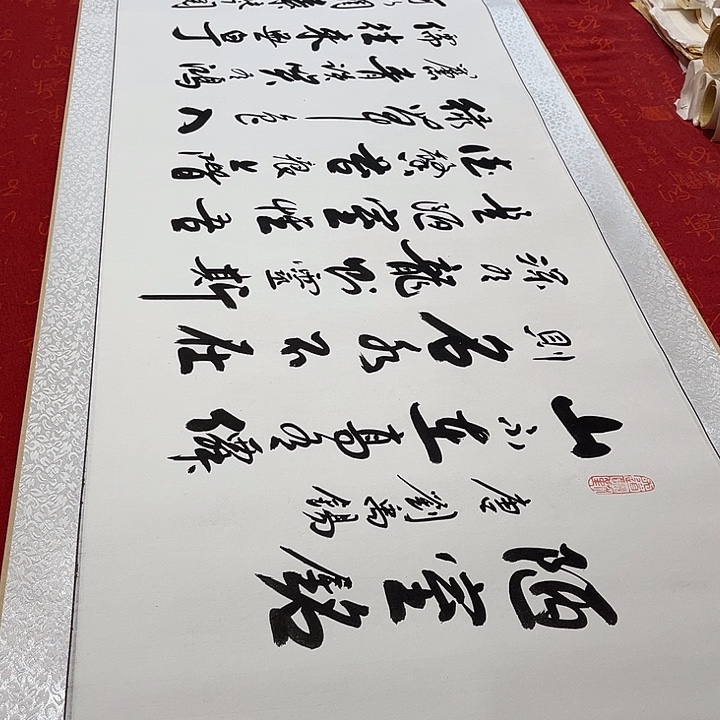 陋室銘
唐劉禹錫
山不在高有僊
則名水不在
深有龍則靈斯
是陋室惟吾
德馨苔痕上階
綠草色入
簾青談笑有鴻
儒往来無白丁